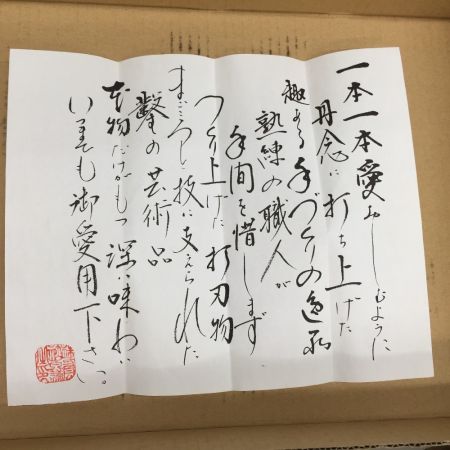 一本一本愛おしむように
丹念に打ち上げた
趣ある手づくりの逸品
熟練の職人が
手間を惜しまず
つくり上げた打刃物
まごころと技に支えられた
鑿の芸術品
本物だけがもつ深い味わい
いつまでも御愛用下さい。